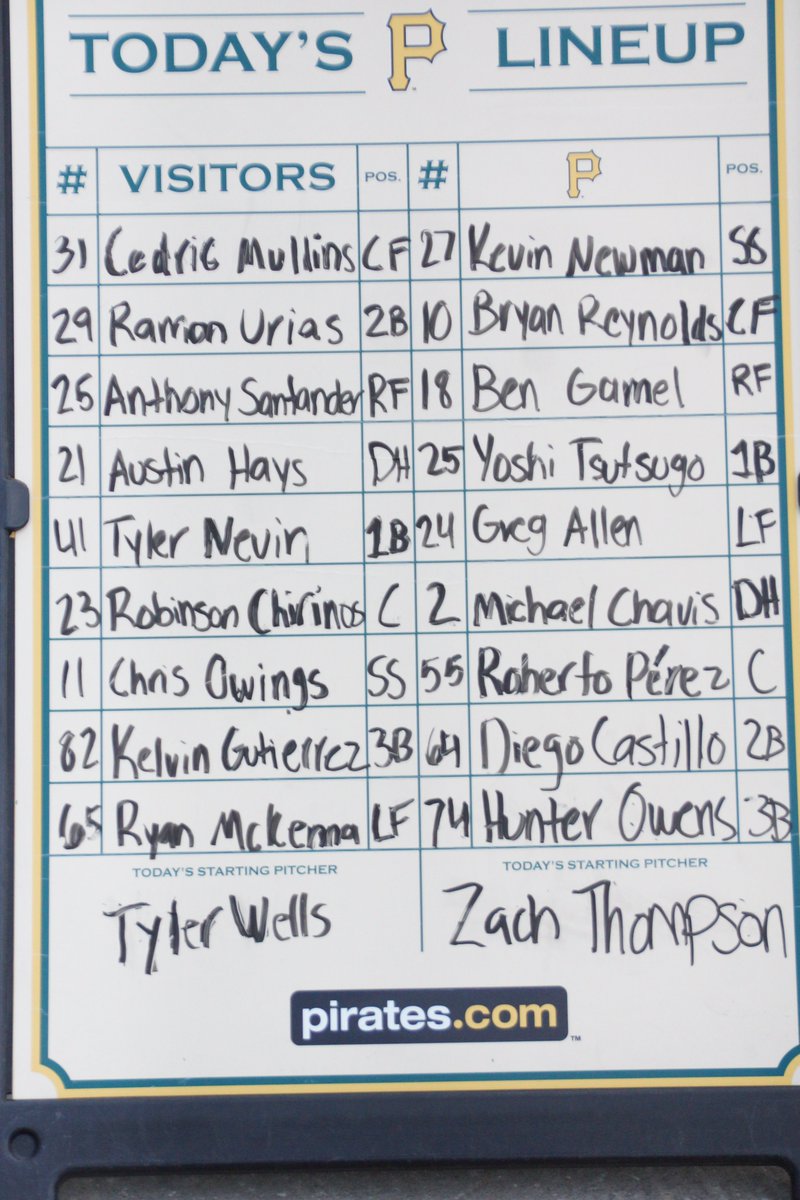 TODAY'S P LINEUP
# VISITORS POS. # P POS.
31 Cedric Mullins CF 27 Kevin Newman SS
29 Ramon Urias 2B 10 Bryan Reynolds CF
25 Anthony Santander RF 18 Ben Gamel RF
21 Austin Hays DH 25 Yoshi Tsutsugo 1B
41 Tyler Nevin 1B 24 Greg Allen LF
23 Robinson Chirinos C 2 Michael Chavis DH
11 Chris Owings SS 55 Roberto Pérez C
82 Kelvin Gutierrez 3B 64 Diego Castillo 2B
65 Ryan McKenna LF 74 Hunter Owens 3B
TODAY'S STARTING PITCHER TODAY'S STARTING PITCHER
Tyler Wells Zach Thompson
pirates.com™